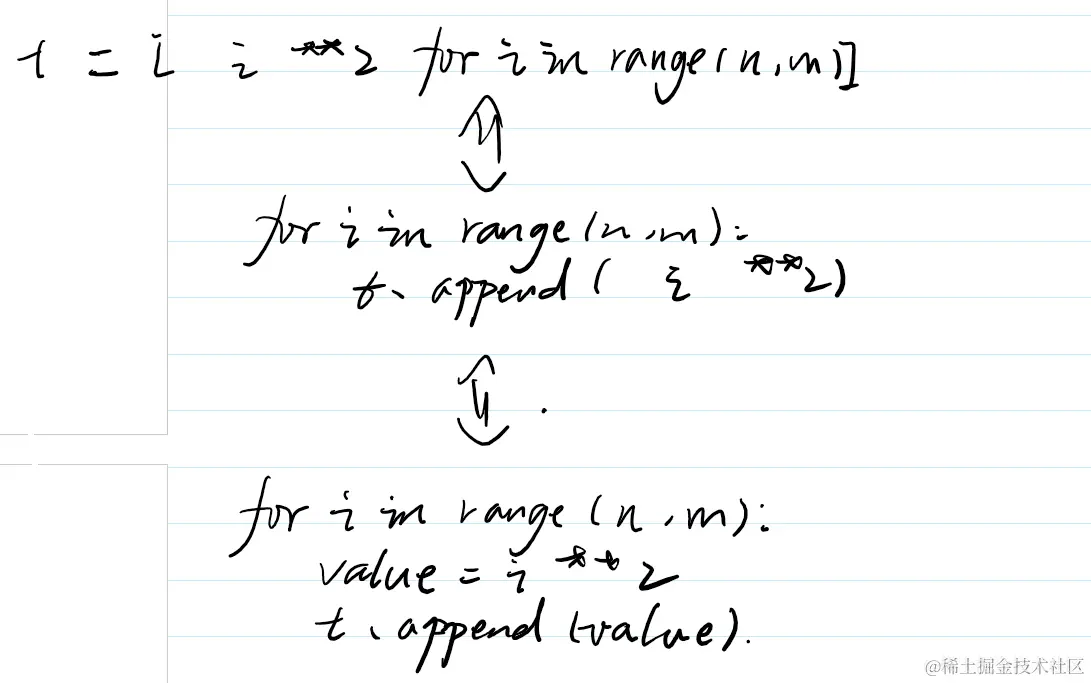 t = [ i **2 for i in range(n,m)]
for i in range(n,m):
t. append( i **2)
for i in range(n,m):
value = i **2
t. append(value).
@稀土掘金技术社区